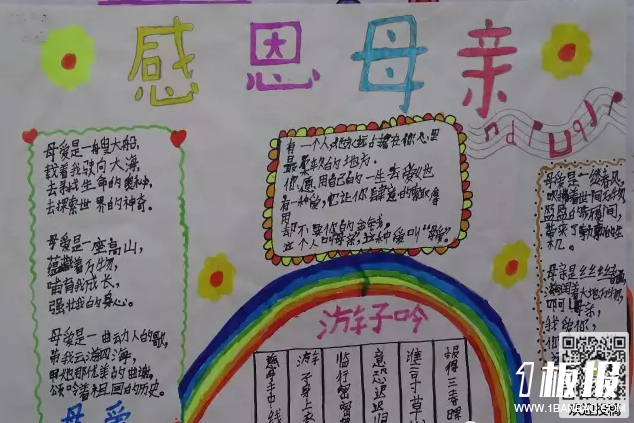 感恩母亲
母爱是一艘大船,
载着我驶向大海,
去寻找生命的奥秘,
去探索世界的神奇。
母爱是一座高山,
蕴藏着万物,
哺育我成长,
强壮我的身心。
母爱是一曲动人的歌,
带我云游四海,
用她那优美的曲谱,
颂吟着祖国的历史。
母爱
有一个人她永远占据在你心里
最柔软的地方.
你愿用自己的一生去爱她
有一种爱,它让你肆意的
用
却不要你的
这个人叫母亲,这种爱叫“母爱”。
游子吟
慈母手中线
游子身上衣
临行密密缝
意恐迟迟归
谁言寸草
报得三春晖
母爱是一缕春风,
吹拂着世间万物
带来了勃勃的生
机。
母亲是丝丝细雨
1板报
WWW.1BANBAO.COM